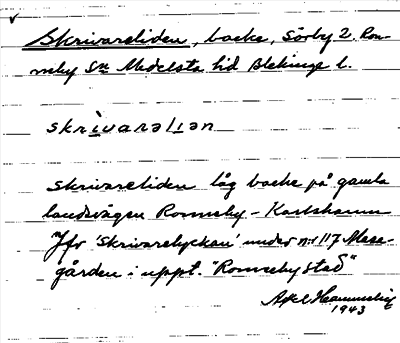 Skrivareliden, backe, Sörby 2. Ron-
neby Sn Medelsta hd Blekinge l.
skrìvarəlıən
Skrivareliden låg backe på gamla
landsvägen Ronneby - Karlshamn
Jfr 'Skrivarelyckan' under nr 117 Mase-
gården i uppt. "Ronneby stad"
Axel
1943